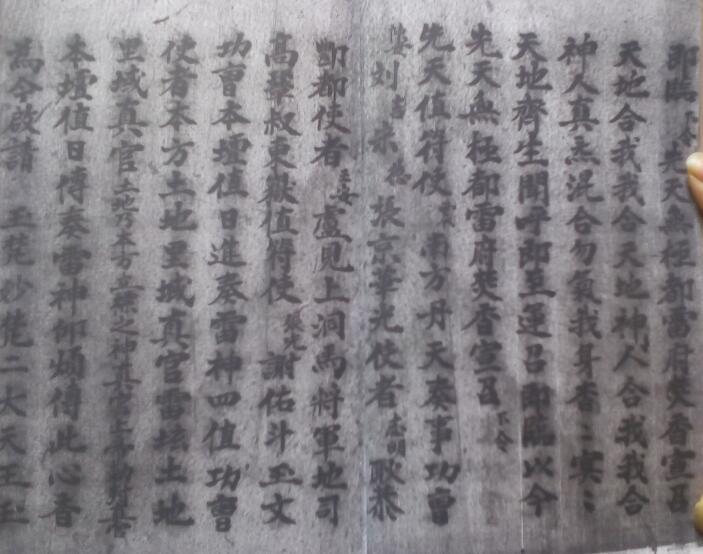 即臨下令先天無極都雷府焚香宣召
天地合我我合天地神人合我我合
神人真炁混合勿氣我身香〻寞〻
天地齊生聞呼即至運召即臨以今
先天無極都雷府焚香宣召下令
先天值符使南方丹天奏事功曹
劉吉朱張京華光使者志明耿恭
酆都使者盧見上洞馬將軍地司
高翠叔東嶽值符使謝佑斗玉文
功曹本壇值日進奏雷神四值功曹
使者本方土地里域真官雷坛土地
里域真官土地乃本方之神真官
本壇值日傳奏雷神仰煩傳此心香
為今啟請玉梵妙梵二大天王玉